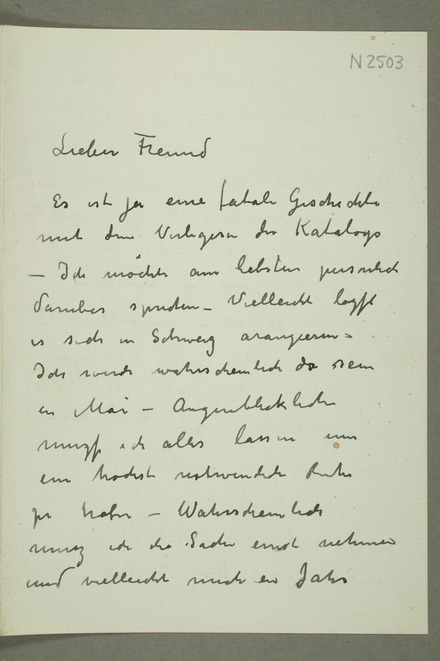 N2503
Lieber Freund
Es ist ja eine fatale Geschichte
mit dem Verlegern des Katalogs
– Ich möchte am liebsten persönlich
darüber sprechen – Vielleicht
es sich in Schweiz arangieren –
Ich werde wahrscheinlich da sein
en Mai – Augenblicklich
muss ich alles lassen um
ein höchst notwendige Ruhe
zu haben – Wahrscheinlich
muss ich die Sache ernst nehmen
und vielleicht noch ein Jahr